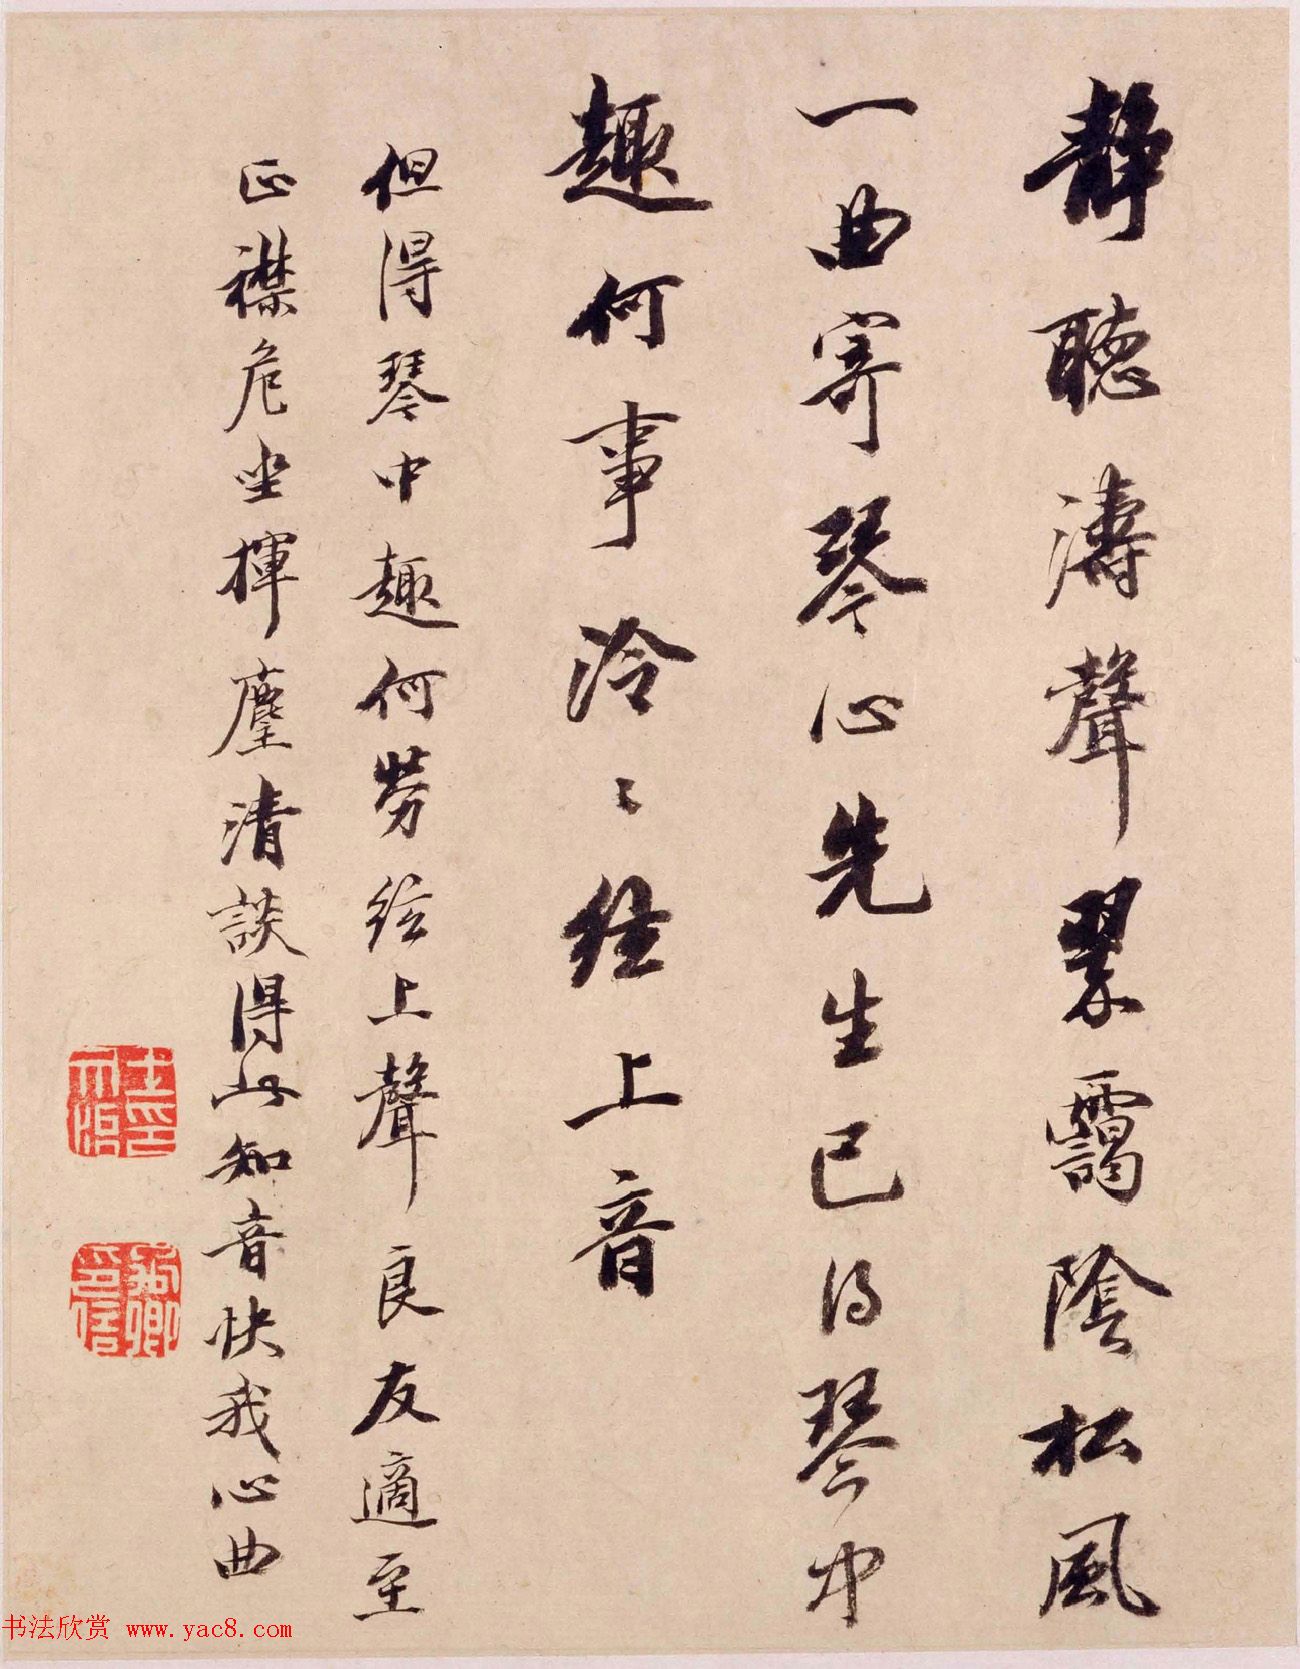 靜聽濤聲翠靄陰松風
一曲寄琴心先生已得琴中
趣何事泠〻絃上音
但得琴中趣何勞絃上聲良友適至
正襟危坐揮麈清談得此知音快我心曲
书法欣赏 www.yac8.com